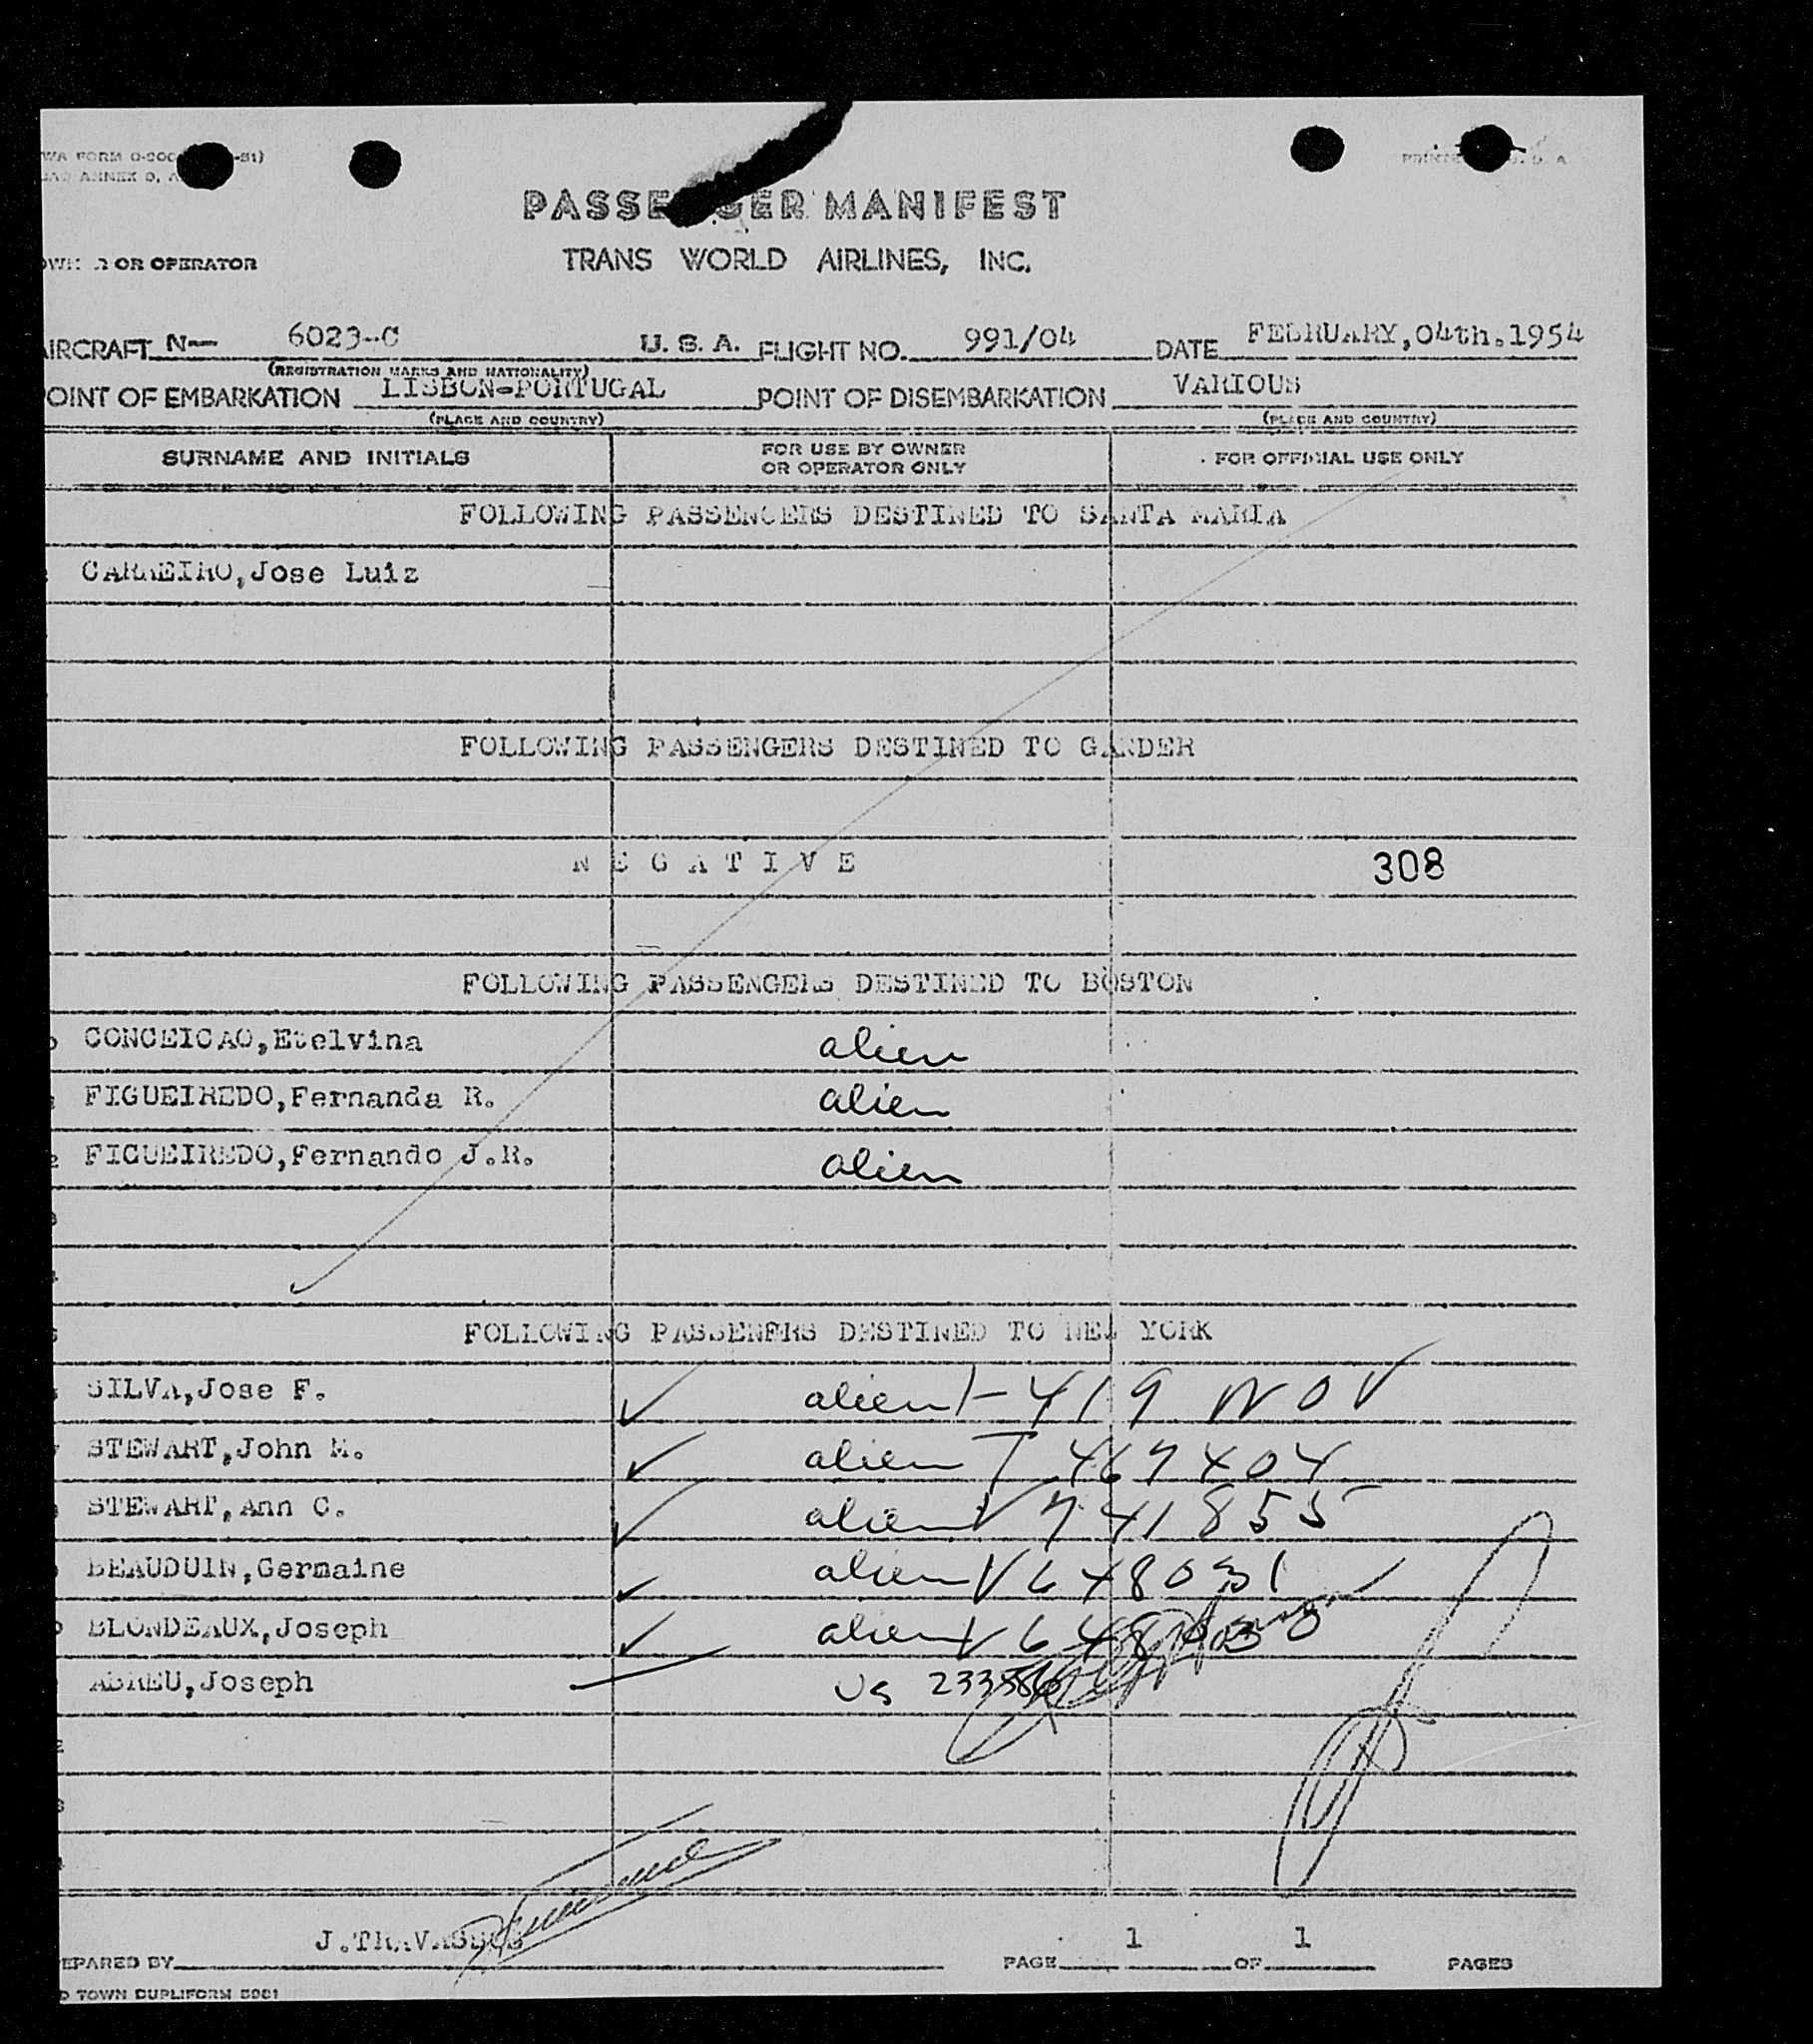 WA FORM 0-200 -51)
ANNEX 9,
PASSENGER MANIFEST
OR OPERATOR
TRANS WORLD AIRLINES, INC.
AIRCRAFT N— 6023-C U. S. A. FLIGHT NO. 991/04 DATE FEBRUARY,04th.1954
(REGISTRATION MARKS AND NATIONALITY)
OINT OF EMBARKATION LISBON-PORTUGAL POINT OF DISEMBARKATION VARIOUS
(PLACE AND COUNTRY) (PLACE AND COUNTRY)
SURNAME AND INITIALS FOR USE BY OWNER OR OPERATOR ONLY FOR OFFICIAL USE ONLY
FOLLOWING PASSENGERS DESTINED TO SANTA MARIA
CARREIRO,Jose Luiz
FOLLOWING PASSENGERS DESTINED TO GANDER
N E G A T I V E 308
FOLLOWING PASSENGERS DESTINED TO BOSTON
CONCEICAO,Etelvina alien
FIGUEIREDO,Fernanda R. alien
FIGUEIREDO,Fernando J.R. alien
FOLLOWING PASSENERS DESTINED TO NEW YORK
SILVA,Jose F. alien 419
STEWART,John M. alien T 467404
STEWART,Ann C. alien V 741855
BEAUDUIN,Germaine alien V 648031
BLONDEAUX,Joseph alien V
ABREU,Joseph US
J.TRAVASSOS
EPARED BY PAGE 1 OF 1 PAGES
TOWN DUPLIFORM 5981